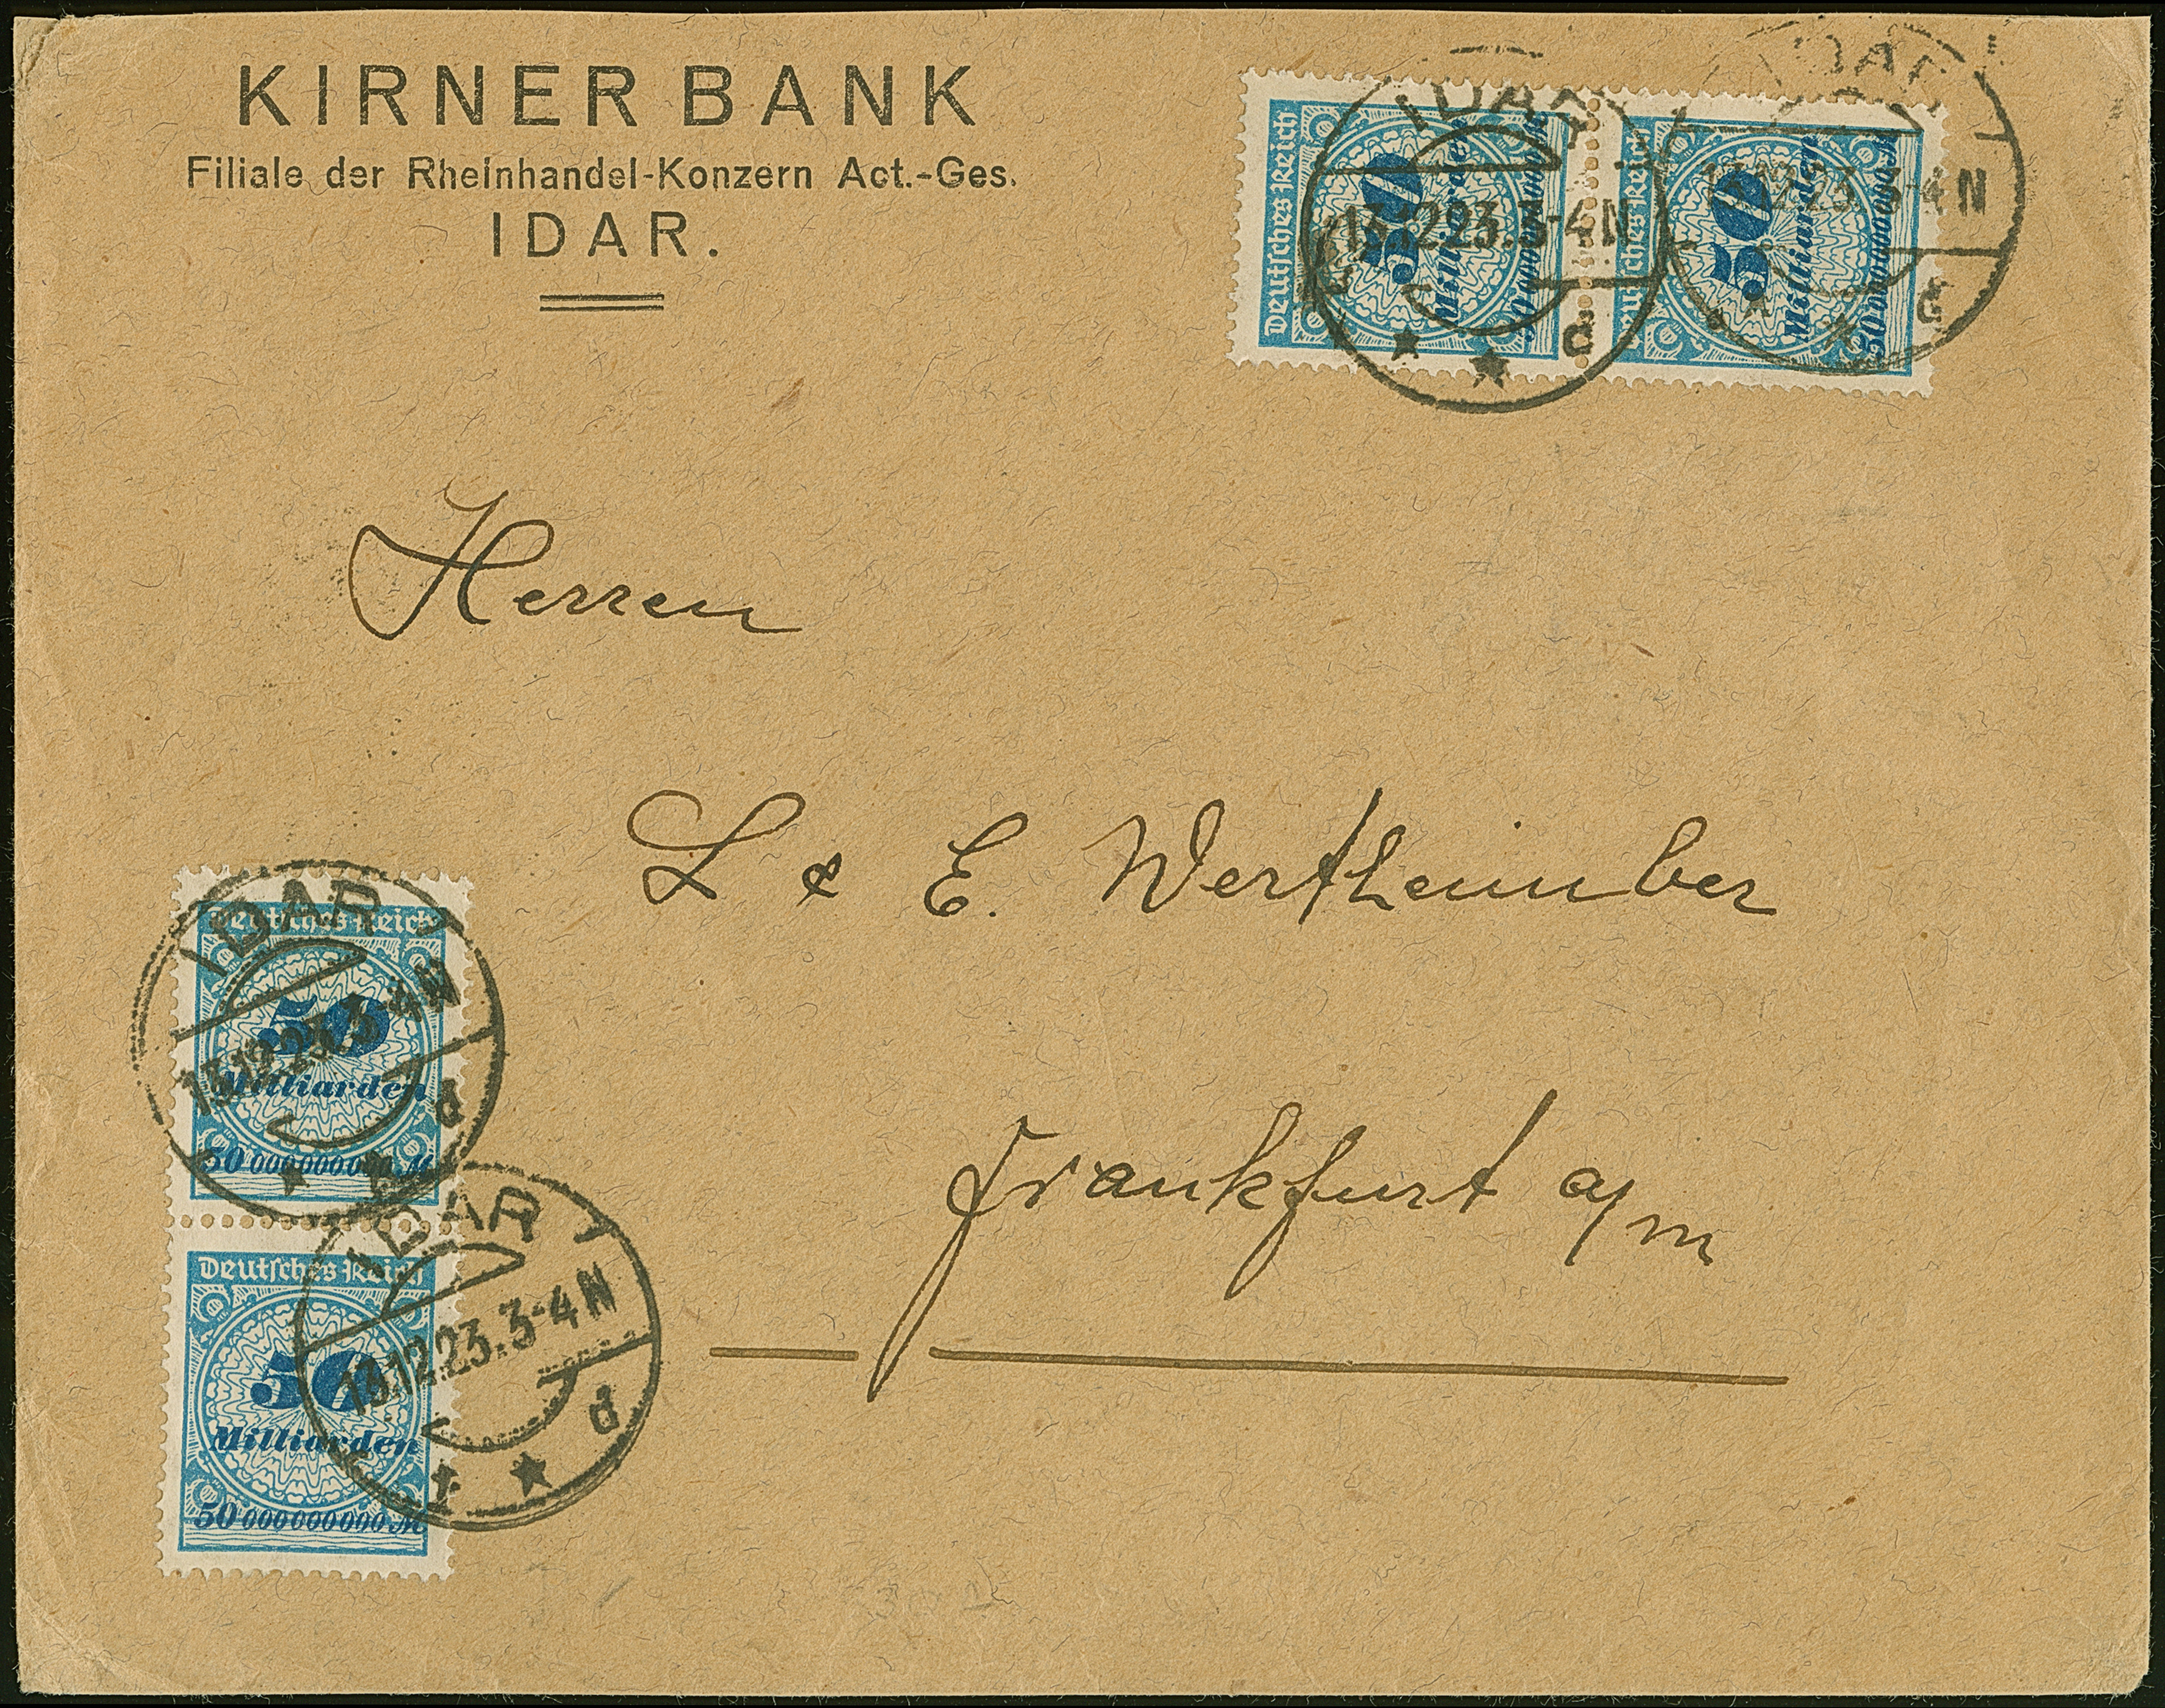 KIRNER BANK
Filiale der Rheinhandel-Konzern Act.-Ges.
IDAR.
Deutsches Reich
50
Milliarden
50 000000000 M
Deutsches Reich
50
Milliarden
50 000000000 M
IDAR
13.12.23.3-4N
d
IDAR
12.23.3-4N
d
Herren
L & E. Wertheimber
Frankfurt a/m
Deutsches Reich
50
Milliarden
50 000000000 M
IDAR
13.12.23.3-4N
d
Deutsches Reich
50
Milliarden
50 000000000 M
IDAR
13.12.23.3-4N
d